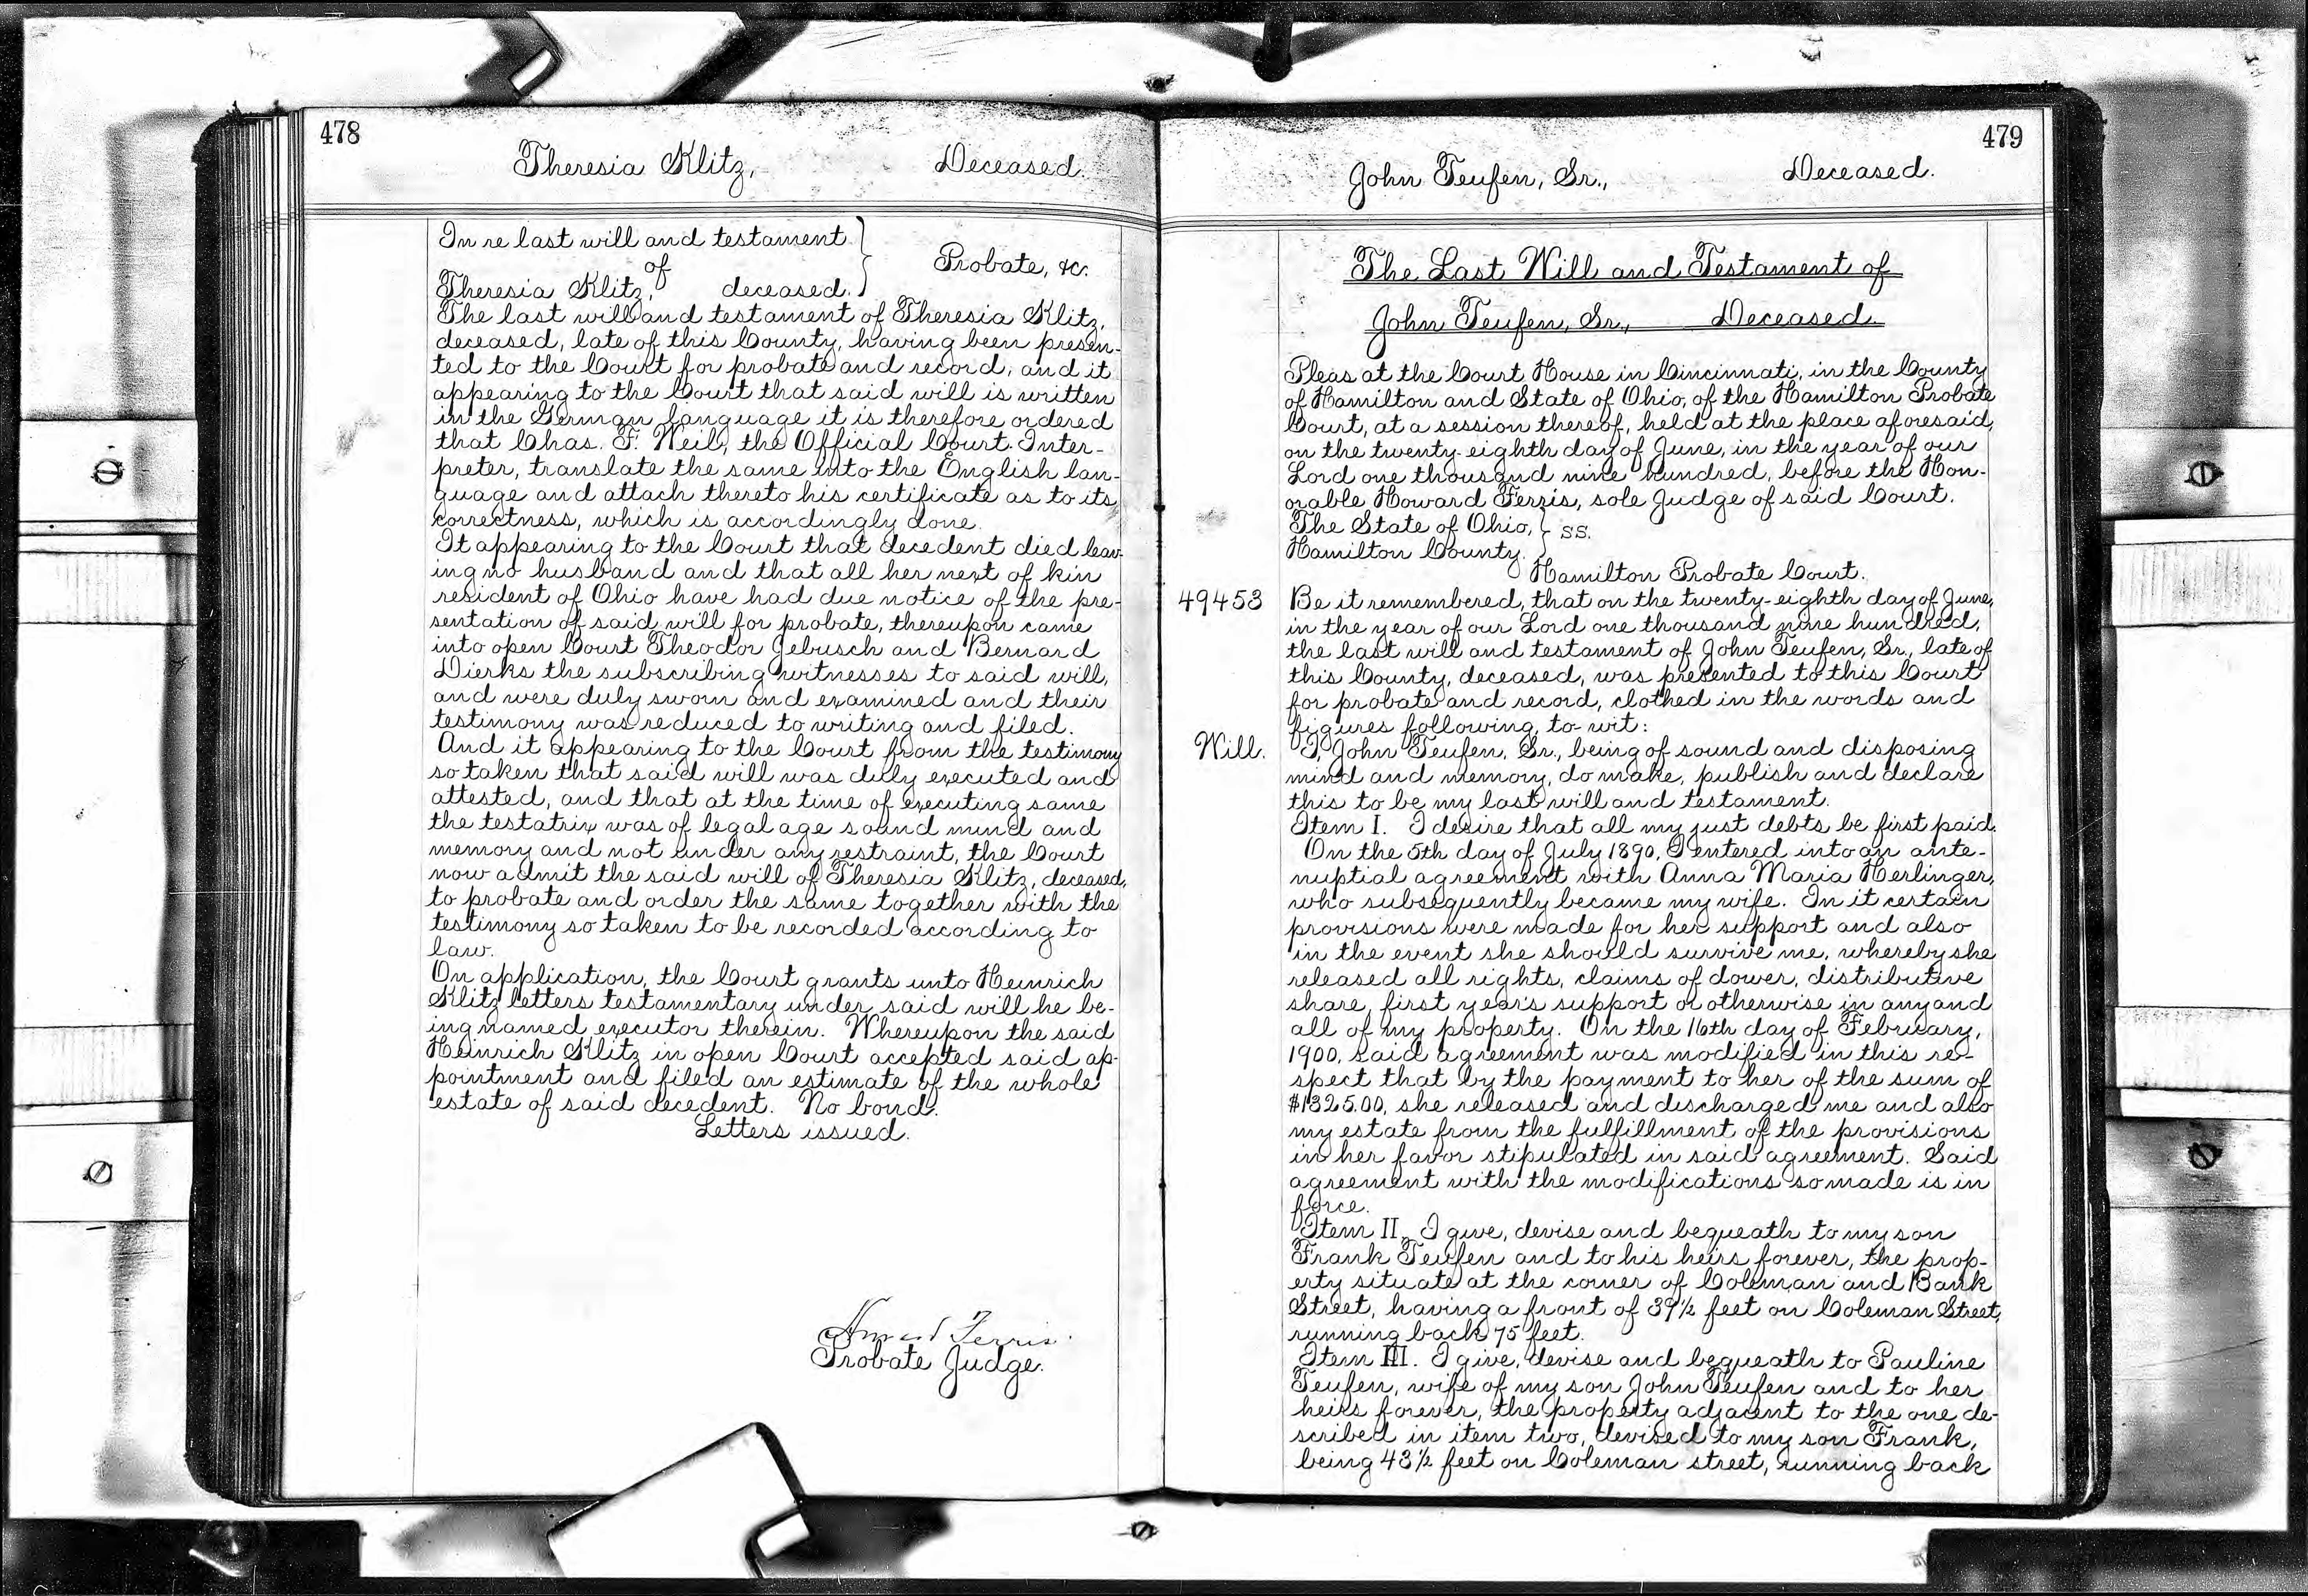 478
Theresia Klitz, Deceased.
In re last will and testament
of
Theresia Klitz, deceased.
Probate, &c.
The last will and testament of Theresia Klitz,
deceased, late of this County, having been presen-
ted to the Court for probate and record, and it
appearing to the Court that said will is written
in the German language it is therefore ordered
that Chas. F. Weil, the Official Court Inter-
preter, translate the same into the English lan-
guage and attach thereto his certificate as to its
correctness, which is accordingly done.
It appearing to the Court that decedent died leav-
ing no husband and that all her next of kin
resident of Ohio have had due notice of the pre-
sentation of said will for probate, thereupon came
into open Court Theodor Jebusch and Bernard
Dierks the subscribing witnesses to said will,
and were duly sworn and examined and their
testimony was reduced to writing and filed.
And it appearing to the Court from the testimony
so taken that said will was duly executed and
attested, and that at the time of executing same
the testatrix was of legal age sound mind and
memory and not under any restraint, the Court
now admit the said will of Theresia Klitz, deceased,
to probate and order the same together with the
testimony so taken to be recorded according to
law.
On application, the Court grants unto Heinrich
Klitz letters testamentary under said will he be-
ing named executor therein. Whereupon the said
Heinrich Klitz in open Court accepted said ap-
pointment and filed an estimate of the whole
estate of said decedent. No bond.
Letters issued.
Howard Ferris.
Probate Judge.
479
John Teufen, Sr., Deceased.
The Last Will and Testament of
John Teufen, Sr., Deceased.
Pleas at the Court House in Cincinnati, in the County
of Hamilton and State of Ohio, of the Hamilton Probate
Court, at a session thereof, held at the place aforesaid,
on the twenty-eighth day of June, in the year of our
Lord one thousand nine hundred, before the Hon-
orable Howard Ferris, sole Judge of said Court.
The State of Ohio, } ss.
Hamilton County.
Hamilton Probate Court.
49453 Be it remembered, that on the twenty-eighth day of June,
in the year of our Lord one thousand nine hundred,
the last will and testament of John Teufen, Sr., late of
this County, deceased, was presented to this Court
for probate and record, clothed in the words and
figures following, to-wit:
Will. I, John Teufen, Sr., being of sound and disposing
mind and memory, do make, publish and declare
this to be my last will and testament.
Item I. I desire that all my just debts be first paid.
On the 5th day of July 1890, I entered into an ante-
nuptial agreement with Anna Maria Herlinger,
who subsequently became my wife. In it certain
provisions were made for her support and also
in the event she should survive me, whereby she
released all rights, claims of dower, distributive
share, first year's support or otherwise in any and
all of my property. On the 16th day of February,
1900, said agreement was modified in this re-
spect that by the payment to her of the sum of
$1325.00, she released and discharged me and also
my estate from the fulfillment of the provisions
in her favor stipulated in said agreement. Said
agreement with the modifications so made is in
force.
Item II. I give, devise and bequeath to my son
Frank Teufen and to his heirs forever, the prop-
erty situate at the corner of Coleman and Bank
Street, having a front of 39½ feet on Coleman Street,
running back 75 feet.
Item III. I give, devise and bequeath to Pauline
Teufen, wife of my son John Teufen and to her
heirs forever, the property adjacent to the one de-
scribed in item two, devised to my son Frank,
being 43½ feet on Coleman street, running back